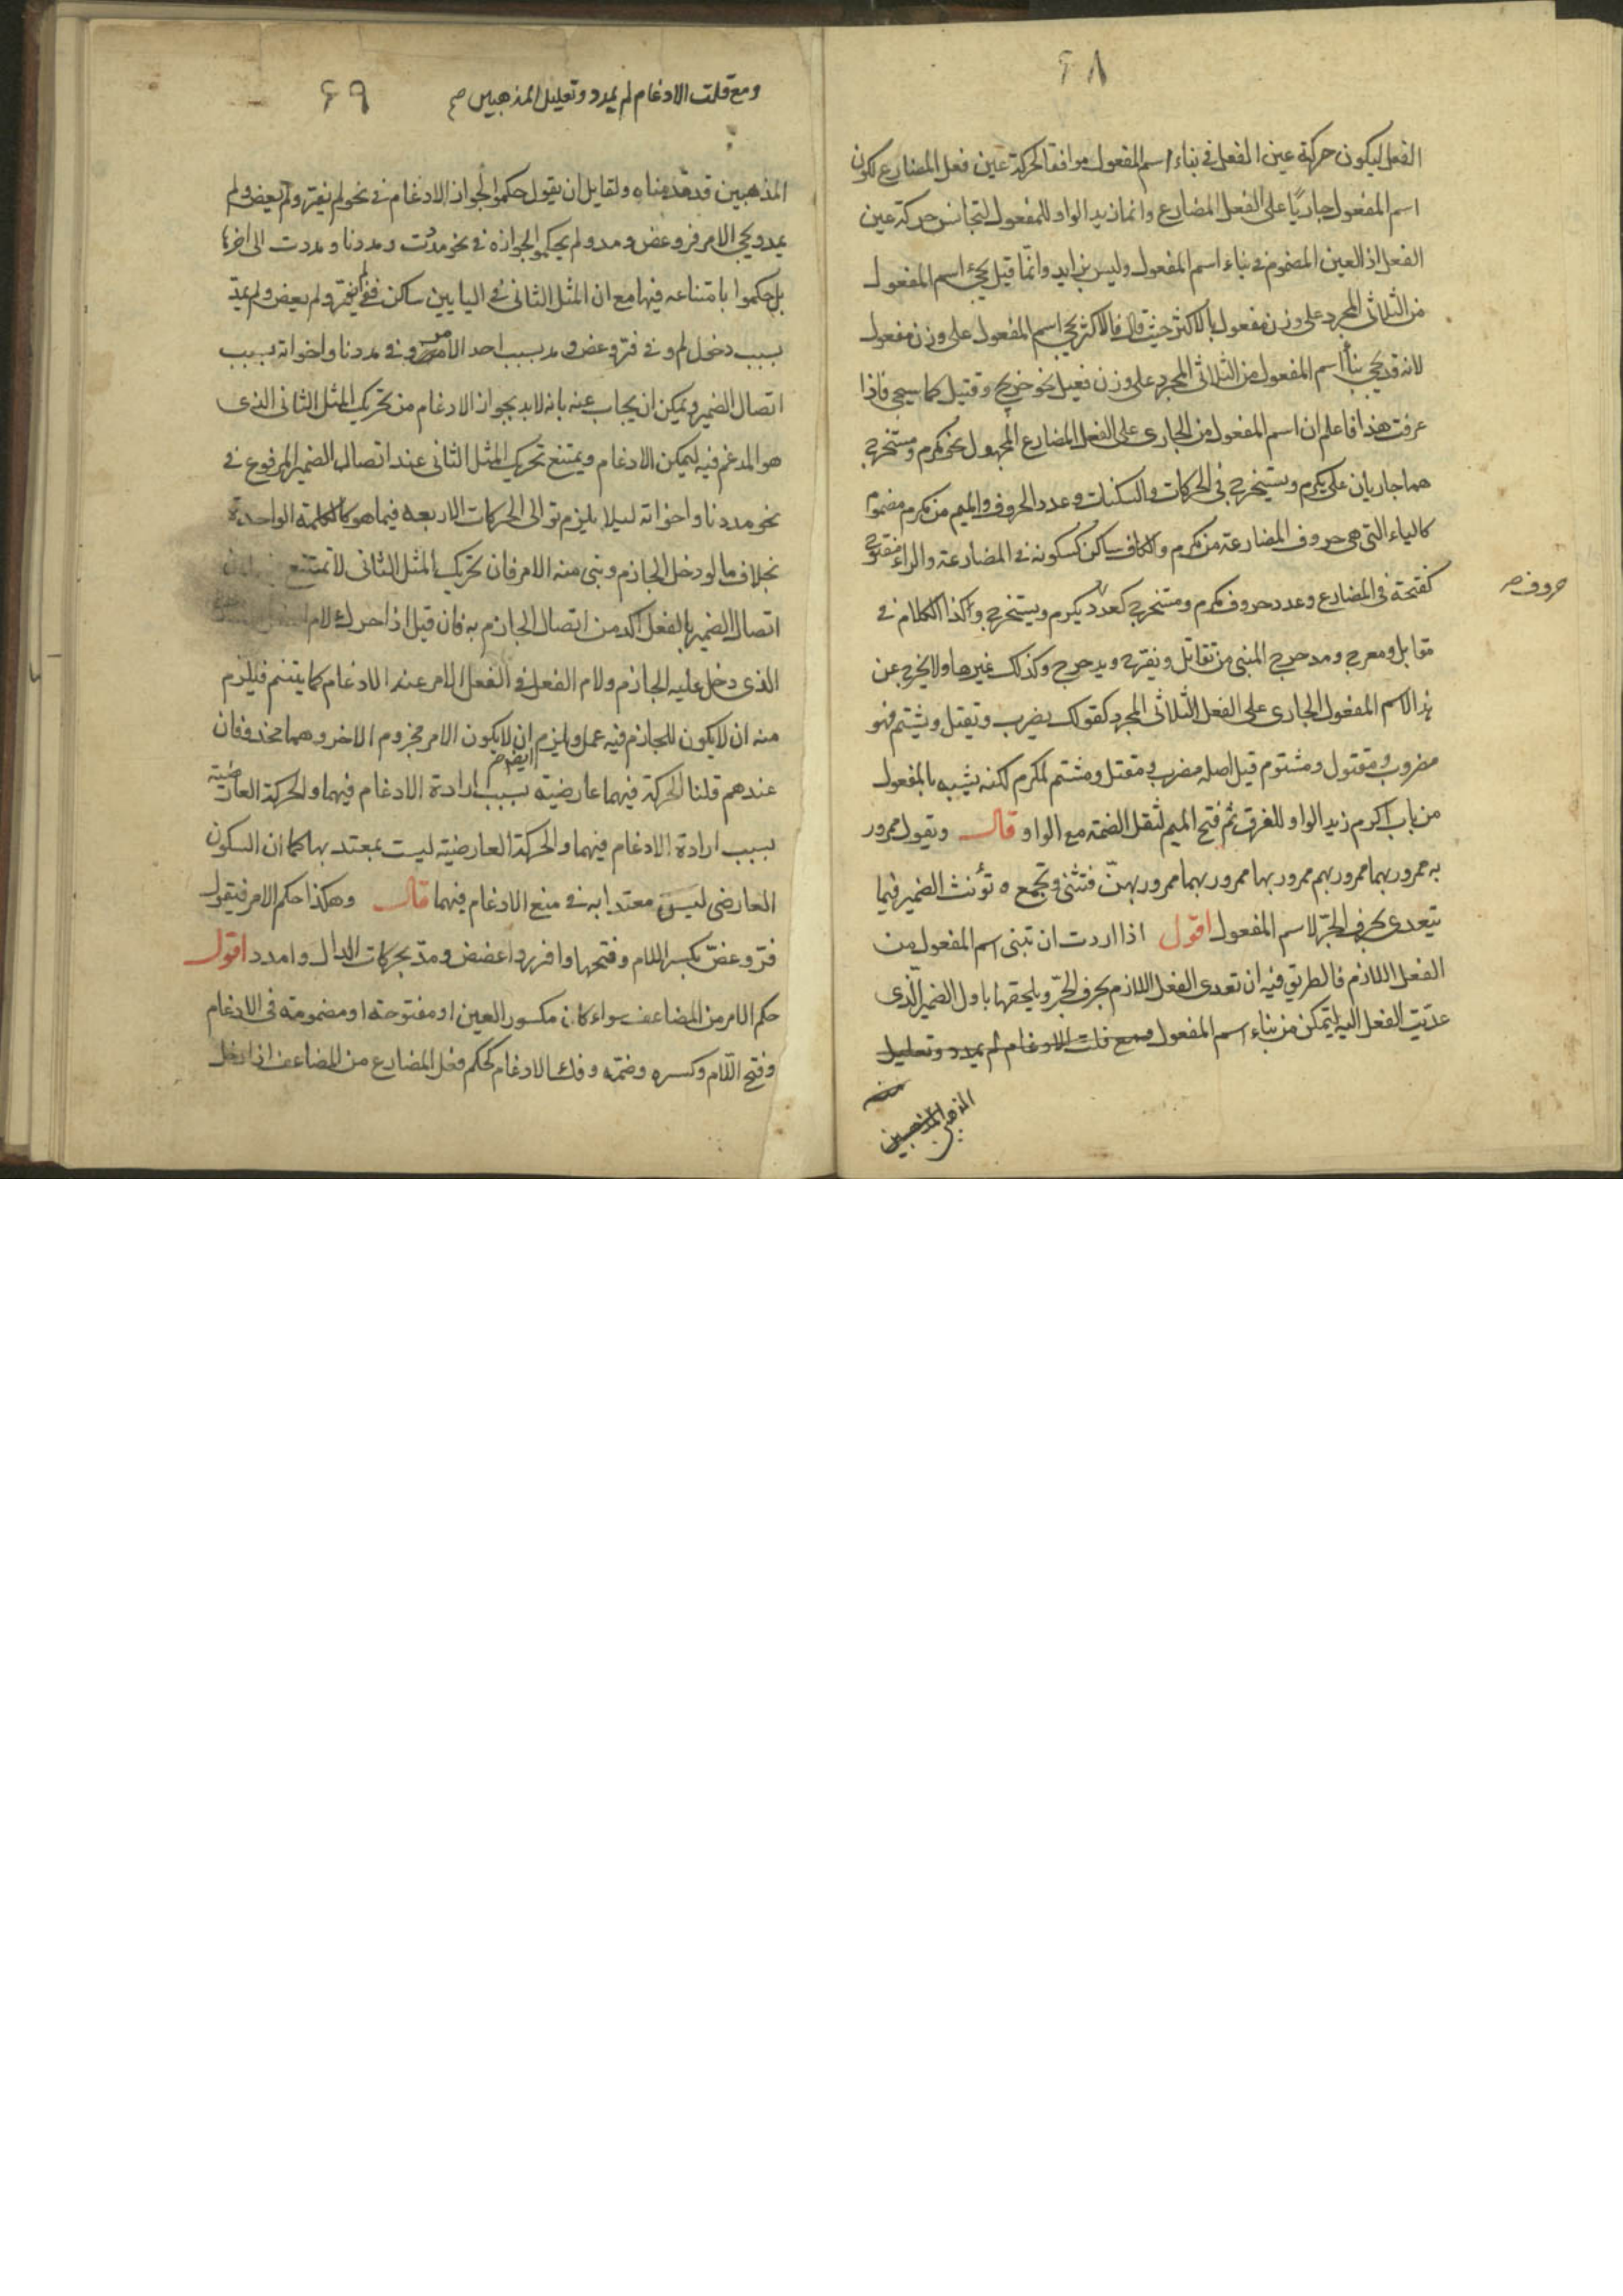 ٤٨
الفعل ليكون حركة عين المفعل فى بناء اسم المفعول موافقا لحركة عين فعل المضارع لكون
اسم المفعول جاريًا على الفعل المضارع وانما زيد الواو للمفعول لتجانس حركة عين
الفعل اذ العين المضموم فى بناء اسم المفعول وليس بزايد وانما قيل يجئ اسم المفعول
من الثلاثى المجرد على وزن مفعول بالاكثر حيث قال فالاكثر يجئ اسم المفعول على وزن مفعول
لانه قد يجئ بناء اسم المفعول من الثلاثى المجرد على وزن فعيل نحو جريح وقتيل كما سيجى فاذا
عرفت هذا فاعلم ان اسم المفعول من الجارى على الفعل المضارع المجهول نحو مكرم ومستخرج
هما جاريان على يكرم ويستخرج فى الحركات والسكنات وعدد الحروف والميم من مكرم مضموم
كالياء التى هى حروف المضارعة من يكرم والكاف ساكن كسكونه فى المضارعة والراء مفتوح
كفتحة فى المضارع وعدد حروف مكرم ومستخرج كعدد يكرم ويستخرج وكذا الكلام فى
حروف صح
مقابل ومعرج ومدحرج المبنى من تقاتل ويدحرج وكذلك غيرها ولا يخرج عن
هذا الاسم المفعول الجارى على الفعل الثلاثى المجرد كقولك يضرب ويقتل ويشتم فهو
مضروب ومقتول ومشتوم قيل اصله مضرب ومقتل ومشتم لمكرم لكنه يشبه بالمفعول
من باب اكرم زيد الواو للفرق ثم فتح الميم لثقل الضمة مع الواو قال وتقول ممرور
به ممرور بهما ممرور بهم ممرور بها ممرور بهما ممرور بهنّ فتثنى وتجمع وتؤنث الضمير فيما
يتعدى بحرف الجرّ لا اسم المفعول اقول اذا اردت ان تبنى اسم المفعول من
الفعل اللازم فالطريق فيه ان تعدى الفعل اللازم بحرف الجرّ ويلحقها باول الضمير الّذى
عدّيت الفعل اليه ليتمكن من بناء اسم المفعول ومع فلت الادغام لم يمدد وتعليل
المذهبين
ومع قلت الادغام لم يمدد وتعليل المذهبين صح
٤٩
المذهبين قد قدمناه ولقايل ان يقول حكموا لجواز الادغام فى نحو لم يفر ولم يعض ولم
يمد ويجئ الامر فر وعض ومد ولم يحكموا لجوازه فى نحو مددت ومددنا ومددت الى اخرها
بل حكموا بامتناعه فيها مع ان المثل الثانى فى البابين ساكن ففى لم يفر ولم يعض ولم يمدّ
بسبب دخول لم وفى فرّ وعض ومد بسبب احد الامرين وفى مددنا واخواته بسبب
اتصال الضمير ويمكن ان يجاب عنه بانه لابد بجواز الادغام من تحريك المثل الثانى الذى
هو المدغم فيه ليمكن الادغام ويمتنع تحريك المثل الثانى عند اتصال الضمير المرفوع فى
نحو مددنا واخواته ليلا يلزم توالى الحركات الاربعه فيما هو كالكلمة الواحدة
بخلاف ما لو دخل الجازم وبنى منه الامر فان تحريك المثل الثانى لا يمتنع
اتصال الضمير بالفعل اكد من اتصال الجازم به فان قيل اذا حرك لام الفعل
الذى دخل عليه الجازم ولام الفعل فى الفعل الامر عند الادغام كما يتنم فيلزم
منه ان لا يكون للجازم فيه عمل ويلزم ان لا يكون الامر مجزوم الاخر وهما محذوفان
عندهم قلنا الحركة فيهما عارضية بسبب ارادة الادغام فيهما والحركة العارضية
ايضا صح
بسبب ارادة الادغام فيهما والحركة العارضية ليست بمعتد بها كما ان السكون
العارضى ليس معتدا به فى منع الادغام فيهما قال وهكذا حكم الامر فيقول
فرّ وعضّ بكسر اللام وفتحها وافرر واعضض ومدّ بحركات الدال وامدد اقول
حكم الامر من المضاعف سواء كان مكسور العين او مفتوحة او مضمومة فى الادغام
وفتح اللّام وكسره وضمّه وفك الادغام كحكم فعل المضارع من المضاعف اذا دخل